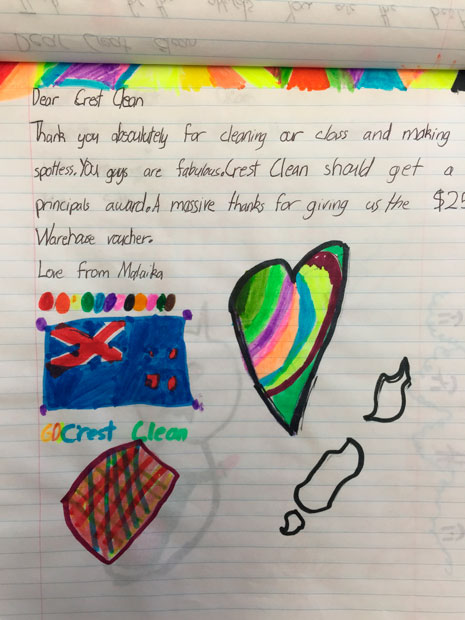 Dear Crest Clean
Thank you absolutely for cleaning our class and making
spotless. You guys are fabulous. Crest Clean should get a
principals award. A massive thanks for giving us the $25
Warehase voucher.
Love from Malaika
GO Crest Clean